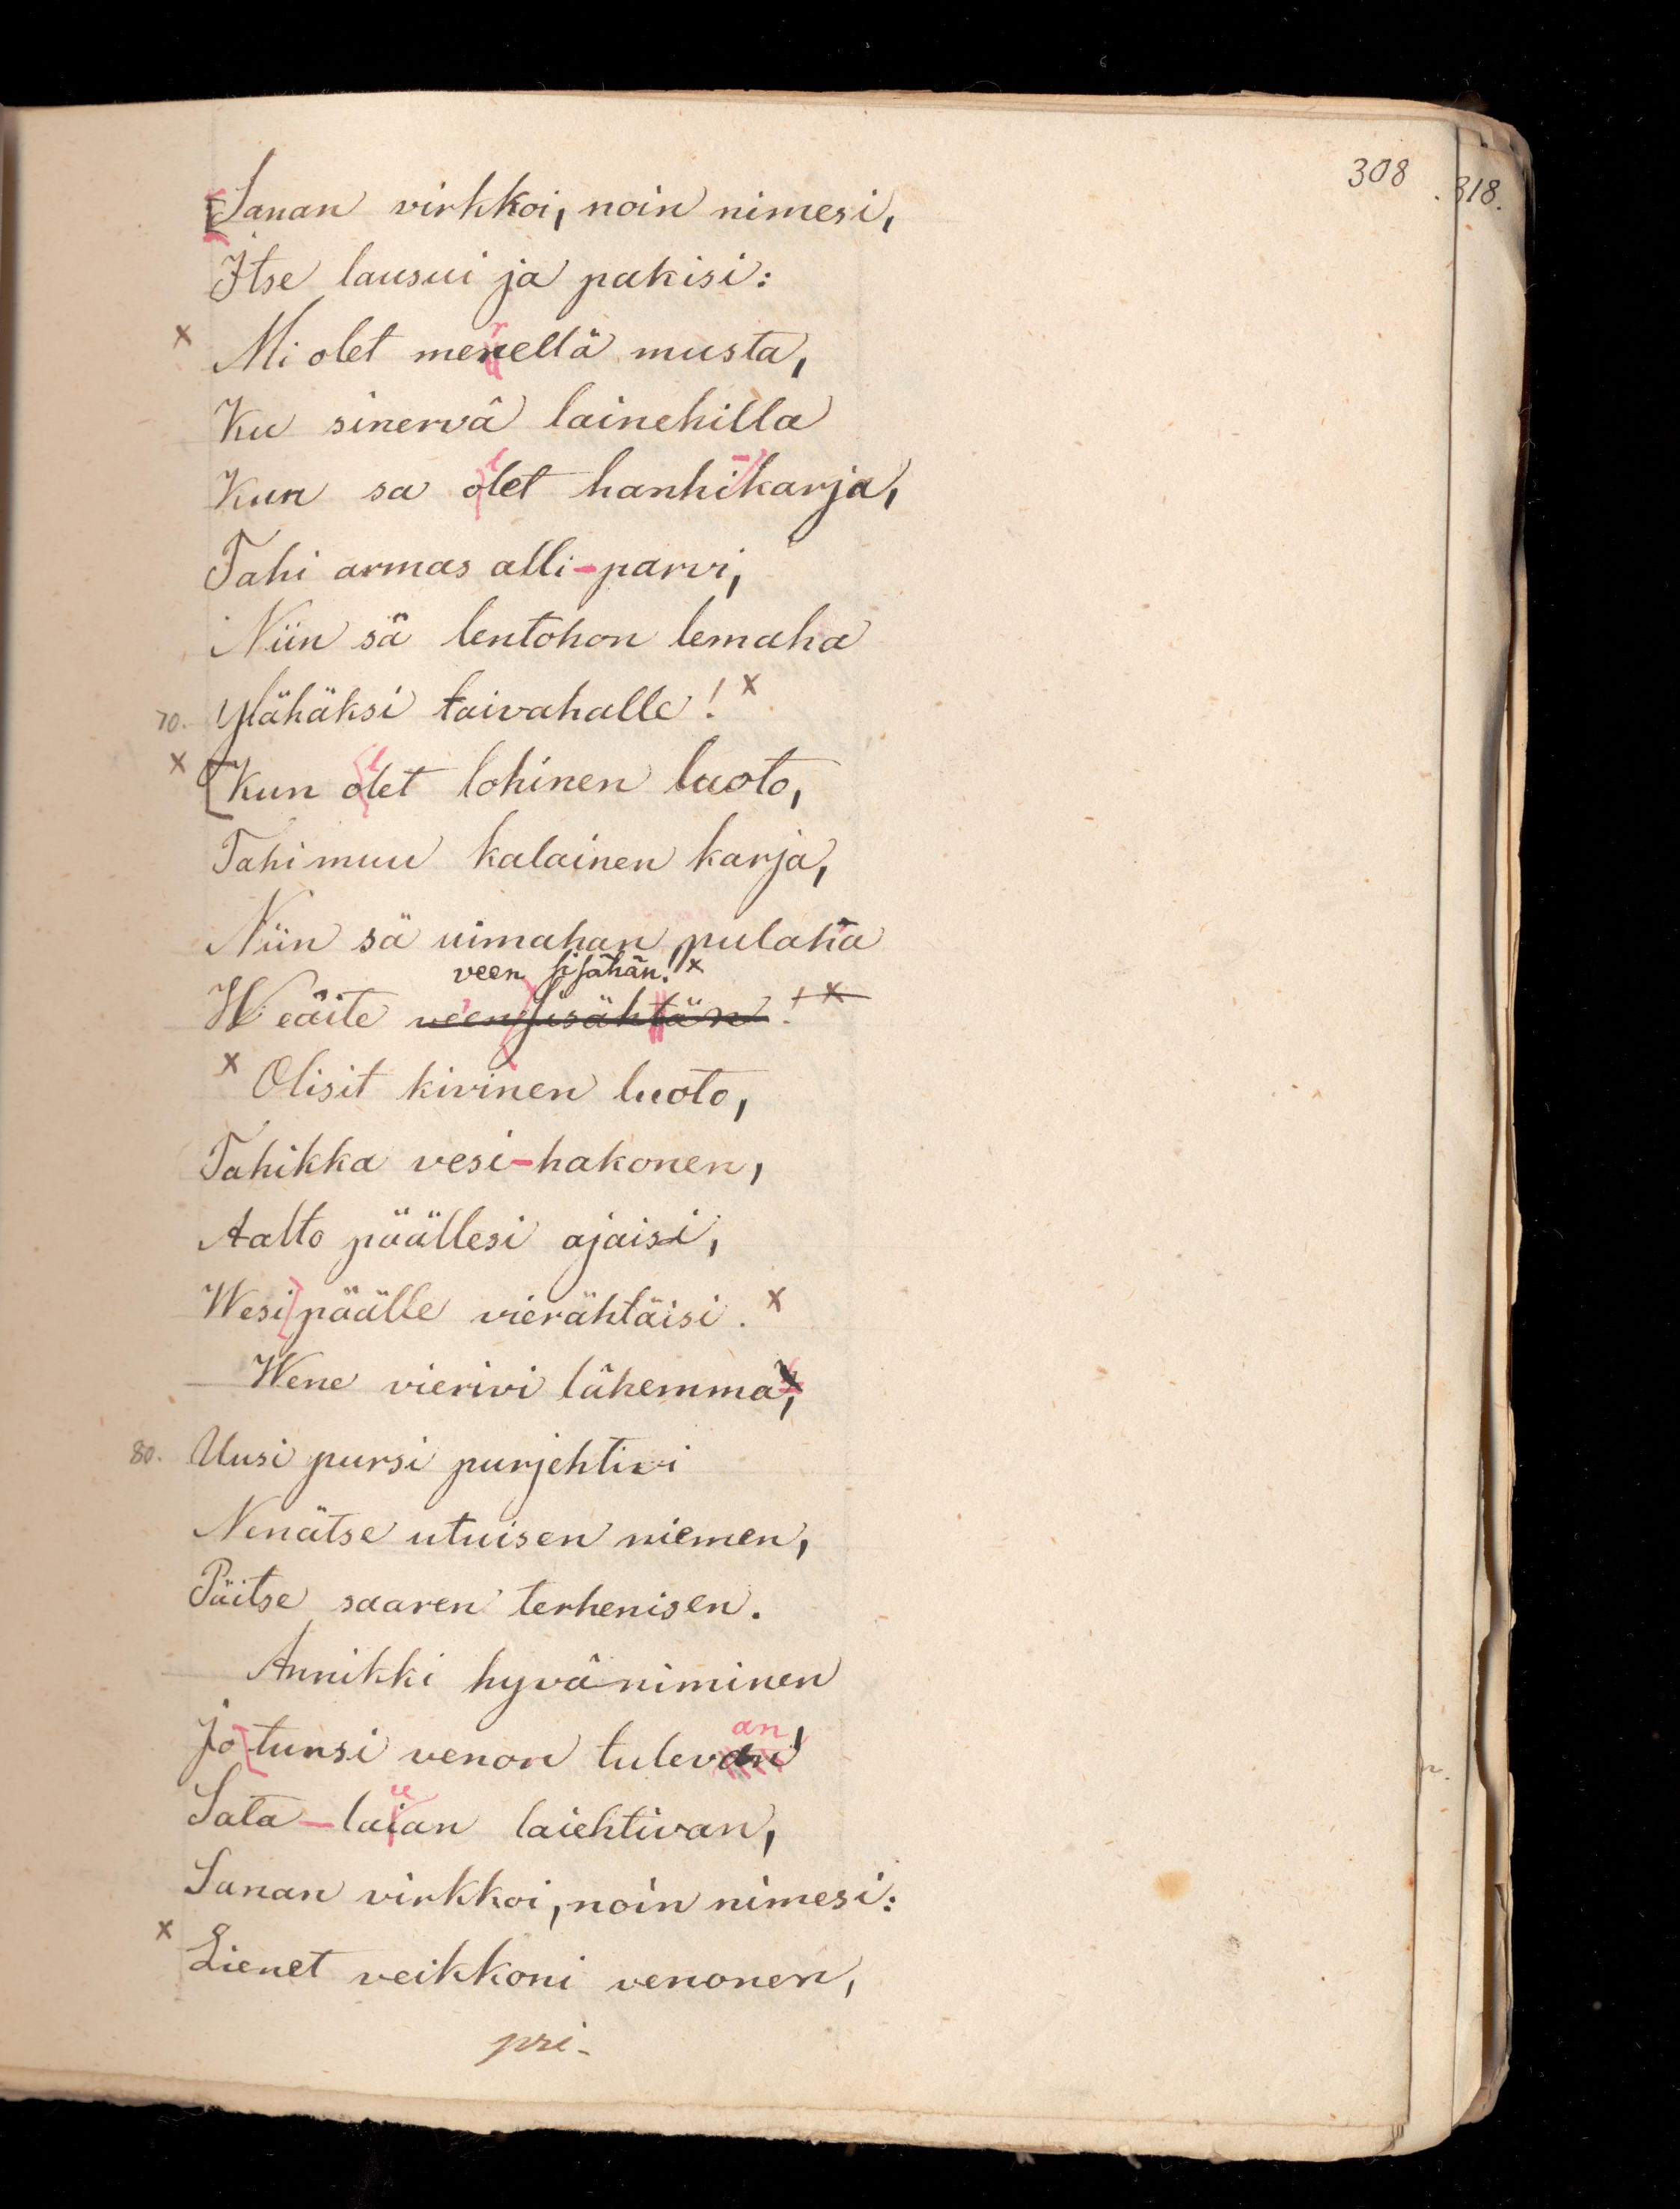 308
318.
Sanan virkkoi, noin nimesi,
Itse lausui ja pakisi:
x Mi olet merellä musta,
Ku sinervä lainehilla
Kun sa olet hanhi-karja,
Tahi armas alli-parvi,
Niin sä lentohon lemaha
70. Ylähäksi taivahalle! x
x [Kun olet lohinen luoto,
Tahi muu kalainen karja,
Niin sä uimahan pulaha
veen sisähän! x
Weäite veen sisähtän! x
x Olisit kivinen luoto,
Tahikka vesi-hakonen,
Aalto päällesi ajaisi,
Wesi päälle vierähtäisi. x
Wene vierivi lähemmä,
80. Uusi pursi purjehtivi
Nenätse utuisen niemen,
Päitse saaren terhenisen.
Annikki hyvä niminen
an
Jo tunsi venon tulevan,
Sata-laian laiehtivan,
Sanan virkkoi, noin nimesi:
x Lienet veikkoni venonen,
pri-